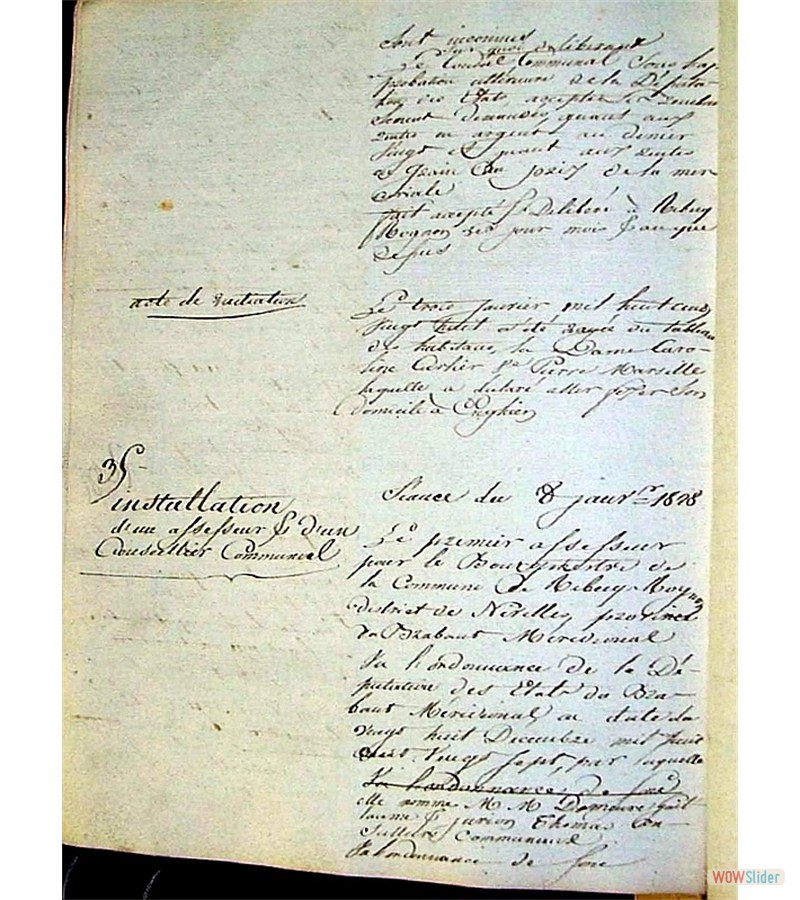 sont inconnues
sur quoi délibérant
Le Conseil Communal sous l'ap
probation ultérieure de la Députa
tion des Etats, accepte le
demandés, quant aux
rentes en argent au denier
vingt et quant aux rentes
en grain au prix de la mer
curiale
fait accepté & Délibéré à Rebecq
Rognon les jour mois & an que
dessus
acte de radiation
Le trois janvier mil huit cent
vingt huit a été rayée du tableau
des habitans, la Dame Caro-
line Carlier Ve Pierre Marselle
laquelle a déclaré aller fixer son
domicile à Enghien
35
installation
d'un assesseur & d'un
Conseiller Communal
Séance du 8 janvr 1828
Le premier assesseur
pour le Bourgmestre de
la Commune de Rebecq-Rognon
district de Nivelles province
du Brabant Méridional
Vu l'ordonnance de la Dé-
putation des Etats du Bra-
bant Méridional en date du
vingt huit Décembre mil huit
cent vingt sept, par laquelle
Vu l'ordonnance de
elle nomme M M Demeure Guil-
laume & Jurion Thomas con
seillers communaux
Vu l'ordonnance de Son
WOWSlider